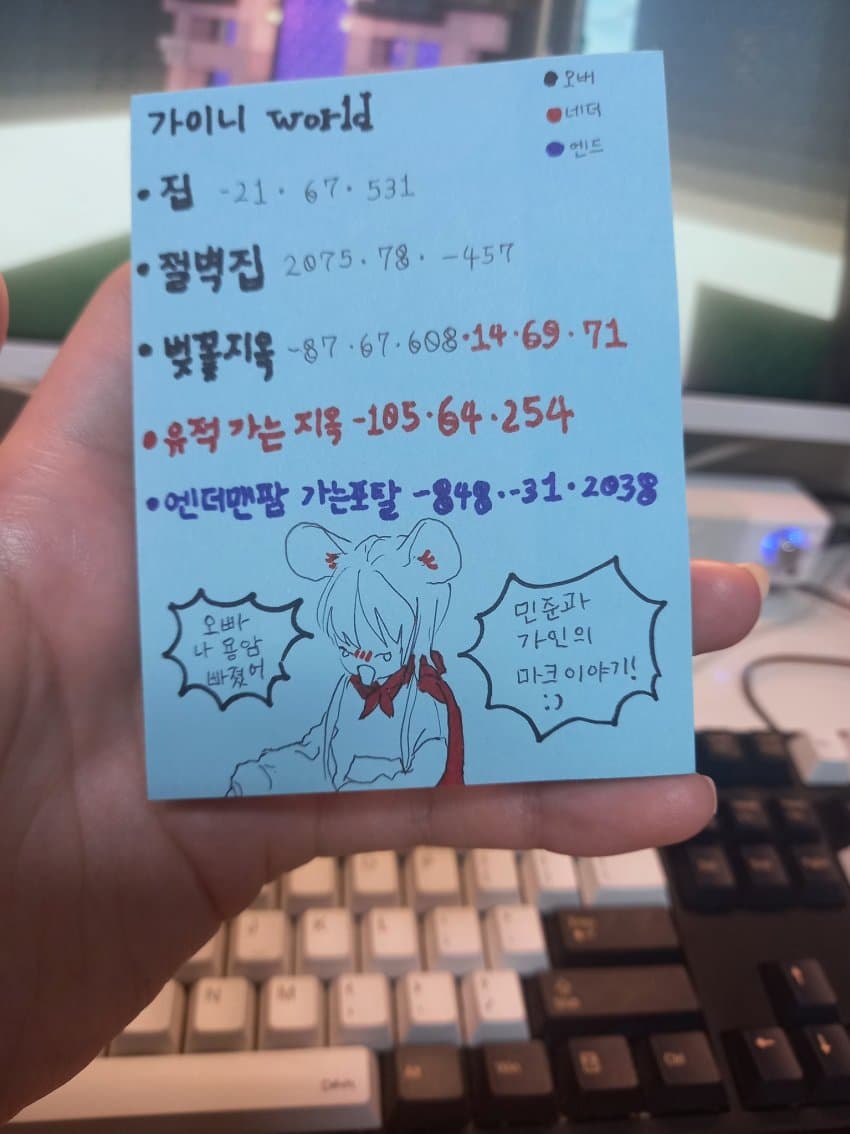 가이니 world
• 오버
• 네더
• 엔드
• 집 -21· 67· 531
• 절벽집 2075·78· -457
• 벚꽃지옥 -87·67·608·14·69·71
• 유적 가는 지옥 -105·64·254
• 엔더맨팜 가는포탈 -848·-31·2038
오빠
나 용암
빠졌어
민준과
가인의
마크이야기!
:)
N
M